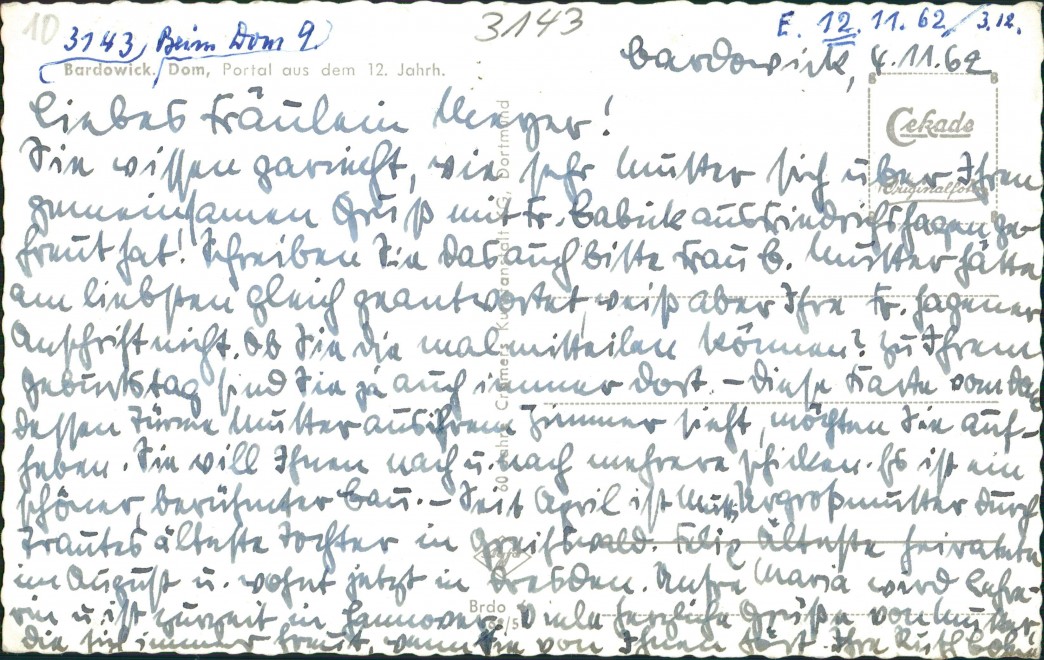 10
3143, Beim Dom 9
3143
E. 12. 11. 62 / 3.12.
Bardowick. Dom, Portal aus dem 12. Jahrh.
Bardowick, 4.11.62
Cekade
Originalfoto
Liebes Fräulein Meyer!
Sie wissen garnicht, wie sehr Mutter sich über Ihren
gemeinsamen Gruß mit Fr. Babick aus Friedrichshagen ge-
freut hat! Schreiben Sie das auch bitte Frau B. Mutter hätte
am liebsten gleich geantwortet, weiß aber Ihre Fr. hagener
Anschrift nicht. Ob Sie die mal mitteilen können? Zu Ihrem
Geburtstag sind Sie ja auch immer dort. – Diese Karte vom Dom
dessen Türme Mutter aus ihrem Zimmer sieht, möchten Sie auf-
heben. Sie will Ihnen nach u. nach mehrere schicken. Es ist ein
schöner, berühmter Bau. – Seit April ist Mutt. Urgroßmutter durch
Trautes älteste Tochter in Greifswald. Felix Älteste heiratete
im August u. wohnt jetzt in Dresden. Unsre Maria wird Lehre-
rin u. ist zurzeit in Hannover. Viele herzliche Grüße von Mutter,
die sich immer freut, wenn sie von Ihnen hört. Ihre Ruth
Cramers Kunstanstalt KG, Dortmund
Brdo